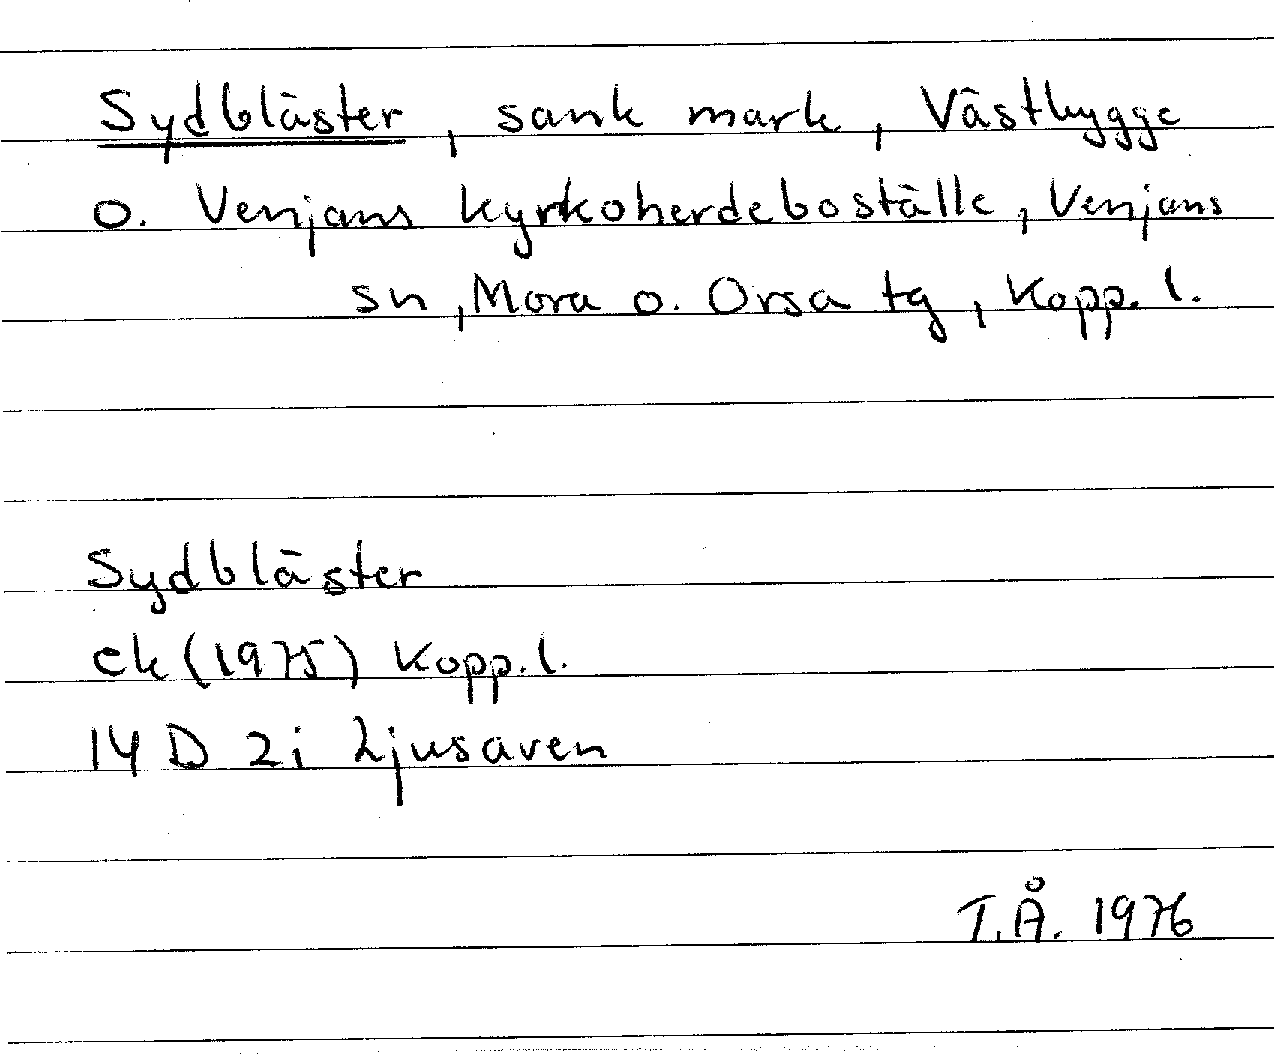 Sydbläster, sank mark, Västbygge
o. Venjans kyrkoherdeboställe, Venjans
sn, Mora o. Orsa tg, Kopp. l.
Sydbläster
ek (1975) Kopp. l.
14 D 2i Ljusaven
T.Å. 1976